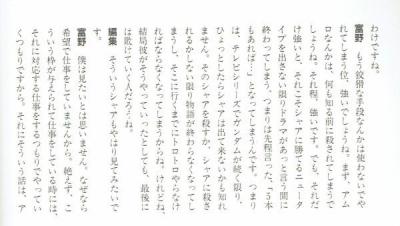 わけですね。
富野　もう狡猾な手段なんかは使わないでや
られてしまう位、強いでしょうね。まず、アム
ロなんかは、何も知る前に殺されてしまうで
しょうね。それ程、強いです。でも、それだ
け強いと、それこそシャアに勝てるニュータ
イプを出さない限りドラマがあっと言う間に
終わってしまう。つまりは先程言った、「5本
もあれば…」となってしまうんです。つまり
は、テレビシリーズでガンダムが続く限り、
ひょっとしたらシャアは出て来ないかも知れ
ません。そのシャアを殺すか、シャアに殺さ
れるかしない限り物語が終わらなくなってし
まうし、そこに行くまでにトロトロやらなけ
ればならなくなってしまうからね。けれどね、
結局彼がそうやっていったとしても、最後に
は敗けていく人だろうね。
編集　そういうシャアもやはり見てみたいで
す。
富野　僕は見たいとは思いません。なぜなら
希望で仕事をしていませんから。絶えず、こ
ういう枠が与えられて仕事をしている時には、
それに対応する仕事をするつもりでやってい
くつもりですから。それにそういう話は、ア